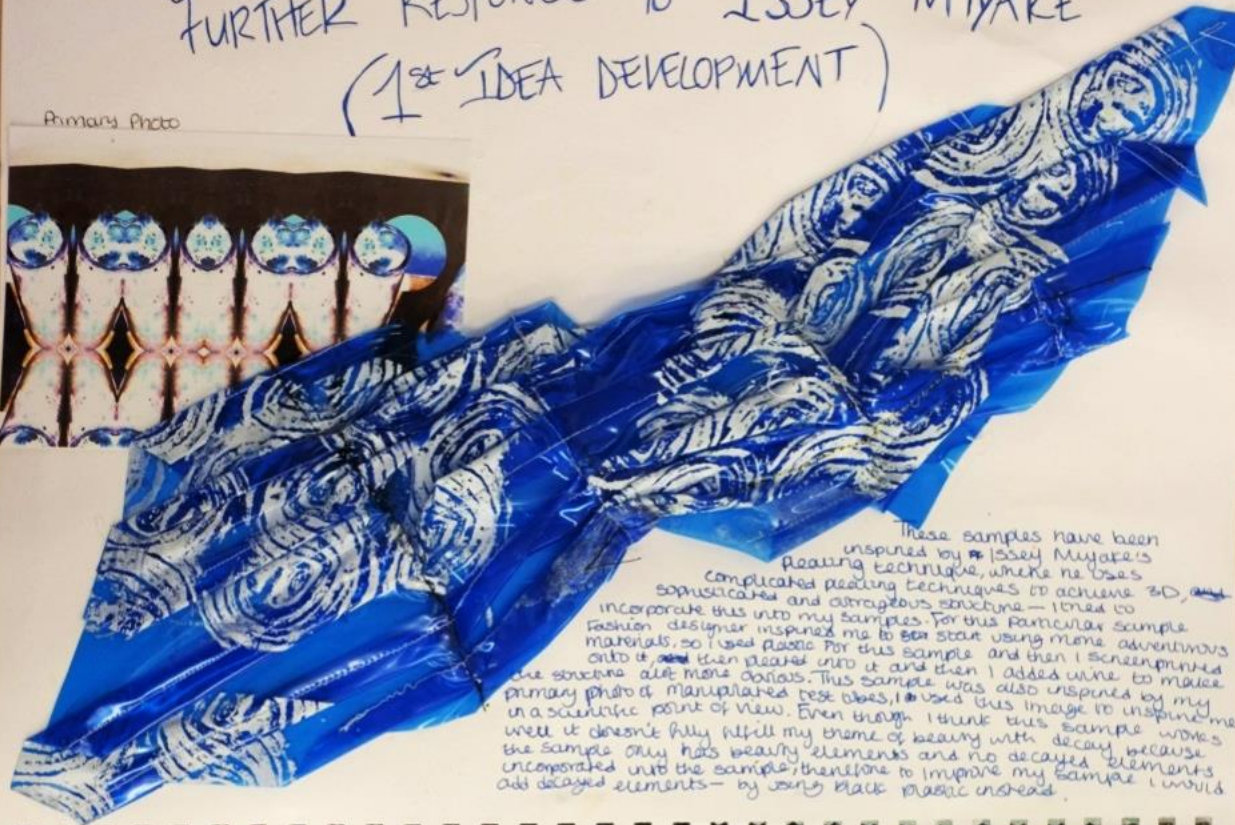 FURTHER RESPONSE TO ISSEY MIYAKE
(1st IDEA DEVELOPMENT)
Primary Photo
These samples have been
inspired by Issey Miyake's
Pleating technique, where he uses
complicated pleating techniques to achieve 3D, and
sophisticated and outrageous structure – I tried to
incorporate this into my samples. For this particular sample
Fashion designer inspired me to start using more adventurous
materials, so I used plastic for this sample and then I screenprinted
onto it, and then pleated into it and then I added wire to make
the structure alot more obvious. This sample was also inspired by my
primary photo of manipulated test tubes, I used this image to inspire me
in a scientific point of view. Even though I think this sample works
well it doesn't fully fulfill my theme of beauty with decay because
the sample only has beauty elements and no decayed elements
incorporated into the sample, therefore to improve my sample I would
add decayed elements – by using black plastic instead.